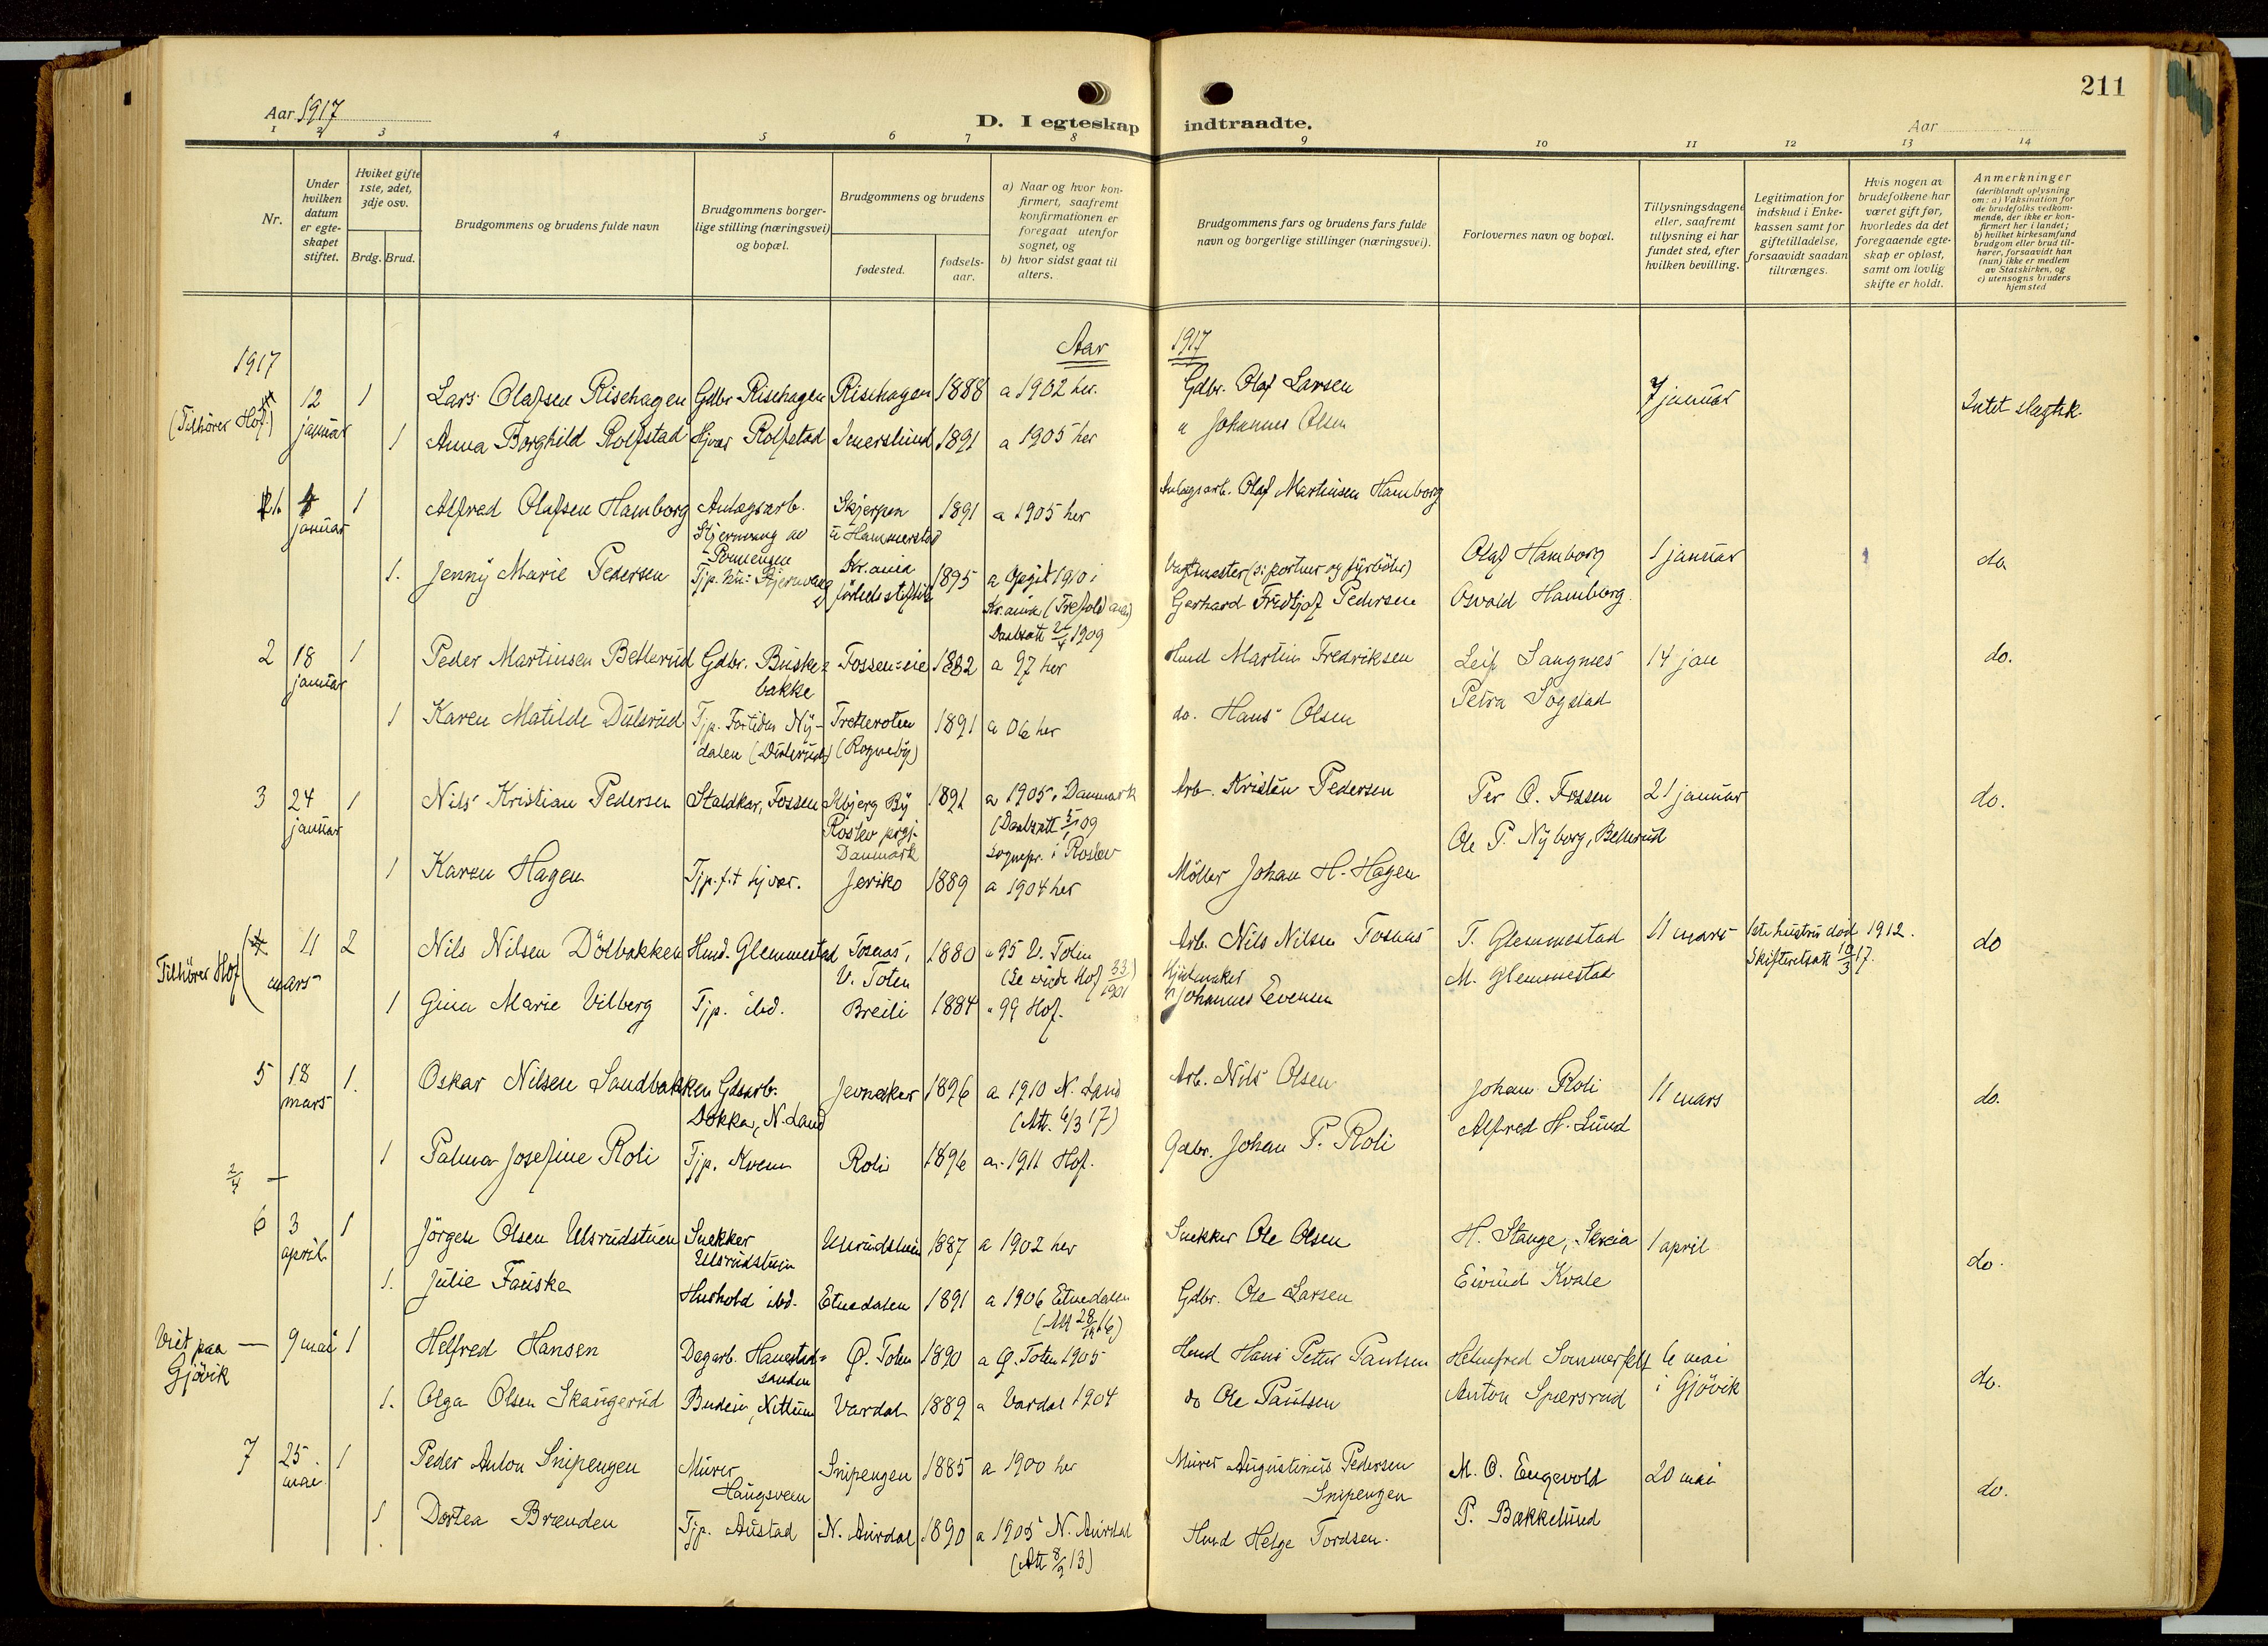 211
Aar 1917
D. I egteskap indtraadte.
Aar
1 2 3 4 5 6 7 8 9 10 11 12 13 14
Nr.
Under hvilken datum er egteskapet stiftet.
Hvilket gifte 1ste, 2det, 3dje osv.
Brdg. Brud.
Brudgommens og brudens fulde navn
Brudgommens borgerlige stilling (næringsvei) og bopæl.
Brudgommens og brudens
fødested.
fødselsaar.
a) Naar og hvor konfirmert, saafremt konfirmationen er foregaat utenfor sognet, og
b) hvor sidst gaat til alters.
Brudgommens fars og brudens fars fulde navn og borgerlige stillinger (næringsvei).
Forlovernes navn og bopæl.
Tillysningsdagene eller, saafremt tillysning ei har fundet sted, efter hvilken bevilling.
Legitimation for indskud i Enkekassen samt for giftetilladelse, forsaavidt saadan tiltrænges.
Hvis nogen av brudefolkene har været gift før, hvorledes da det foregaaende egteskap er opløst, samt om lovlig skifte er holdt.
Anmerkninger (deriblandt oplysning om: a) Vaksination for de brudefolks vedkommende, der ikke er konfirmert her i landet; b) hvilket kirkesamfund brudgom eller brud tilhører, forsaavidt han (hun) ikke er medlem av Statskirken, og c) utensogns bruders hjemsted
1917
Aar 1917
(Tilhører Hof) 12 januar 1 Lars Olafsen Risehagen Gdbr Risehagen Risehagen 1888 a 1902 her. Gdbr. Olaf Larsen 7 januar Intet slegtsk.
1 Anna Borghild Rolfstad Hjvær Rolfstad 1891 a 1905 her " Johannes Olsen
1. 4 januar 1 Alfred Olafsen Hamborg Anlægsarb. Skjerpen u Hammerstad 1891 a 1905 her Anlægsarb. Olaf Martinsen Hamborg Olaf Hamborg 1 januar do.
1. Jenny Marie Pedersen Tjp. Kr.ania fødselsstiftelse 1895 a 1910 i Kr.ania Gerhard Fridtjof Pedersen Osvald Hamborg.
2 18 januar 1 Peder Martinsen Bellerud Gdbr. Buskebakke Fossen=eie 1882 a 97 her Hmd Martin Fredriksen Leif Langnes 14 jan do.
1 Karen Matilde Dulsrud Tjp. Nydalen (Dulsrud) (Rogneby) 1891 a 06 her do. Hans Olsen Petra Sogstad
3 24 januar 1 Nils Kristian Pedersen Staldkar, Fossen Kbjerg By Roslev prgj. Danmark 1891 a 1905, Danmark (Daabsatt 5/1 09 sognepr. i Roslev Arb. Kristen Pedersen Per O. Fossen 21 januar do.
Ole P. Nyborg, Bellerud
1 Karen Hagen Tjp. f.t hjvær. Jeriko 1889 a 1904 her Møller Johan H. Hagen
Tilhører Hof 11 mars 2 Nils Nilsen Dölbakken Hmd. Glemmestad Tosnæs, V. Toten 1880 " 95 V. Toten (Se vide Hof 33/1901) Arb. Nils Nilsen Tosnæs T. Glemmestad 11 mars 1ste hustru död 1912. Skifteretsatt 10/3 17. do
1 Gina Marie Vilberg Tjp. ibd. Breili 1884 " 99 Hof. Hjulmaker Johannes Evensen M. Glemmestad
5 18 mars 1. Oskar Nilsen Sandbakken Gdsarb. Dokka, N. Land Jevnaker 1896 a 1910 N. Land (Att. 6/3 17) Arb. Nils Olsen Johan Roli 11 mars do.
1 Palma Josefine Roli Tjp. Kvem Roli 1896 a. 1911 Hof. Gdbr. Johan P. Roli Alfred H. Lund
2/4 —
6 3 april 1 Jörgen Olsen Ulsrudstuen Snekker Ulsrudstuen Ulsrudstuen 1887 a 1902 her Snekker Ole Olsen H. Stange, Skreia 1 april do.
1. Julie Fauske Hushold ibd. Etnedalen 1891 a 1906 Etnedalen Gdbr. Ole Larsen Eivind Kvale
Viet paa Gjövik — 9 mai 1 Helfred Hansen Dagarb. Hanestadsanden Ø. Toten 1890 a Ø. Toten 1905 Hmd Hans Peter Paulsen Helmfred Sommerfelt 6 mai i Gjövik do.
1. Olga Olsen Skaugerud Budeie, Nettum Vardal 1889 a Vardal 1904 do Ole Paulsen Anton Spersrud
7 25. mai 1 Peder Anton Snipengen Murer Haugsveen Snipengen 1885 a 1900 her Murer Augustinus Pedersen Snipengen M. O. Engevold 20 mai do.
1 Dortea Brænden Tjp. Austad N. Aurdal 1890 a 1905 N. Aurdal (Att 8/2 13) Hmd Helge Tordsen. P. Bakkelund